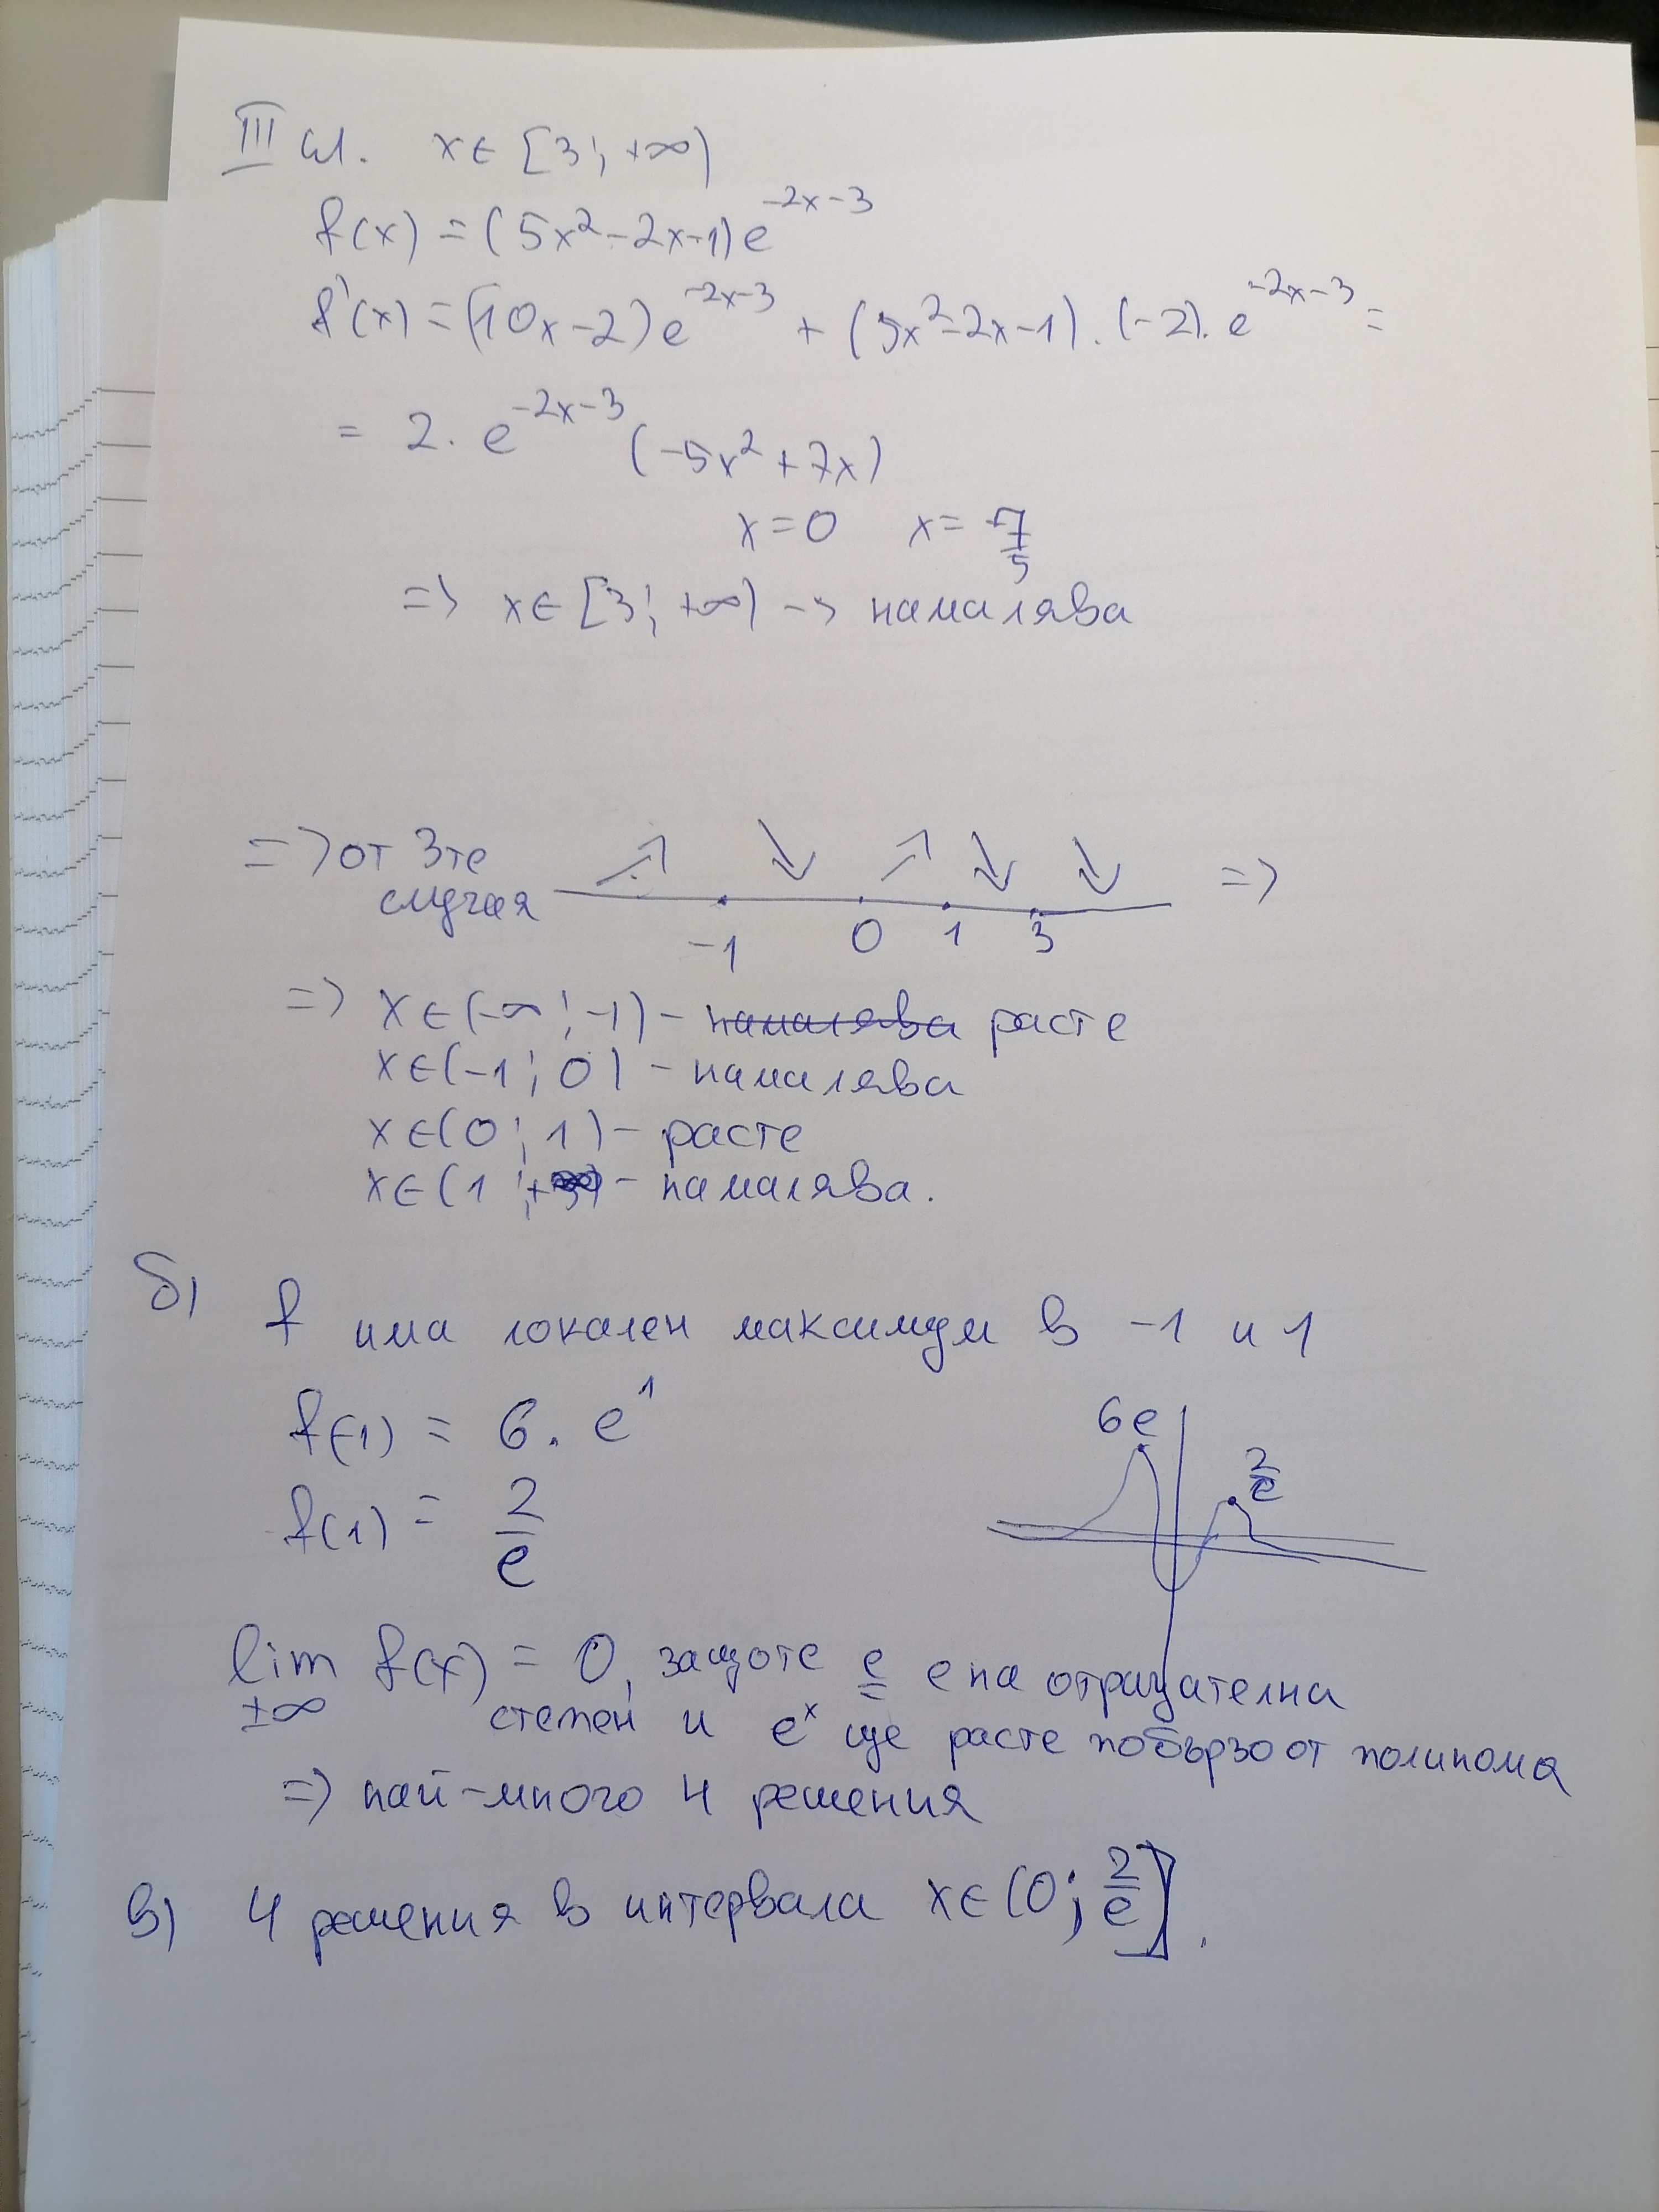 III сл. x∈[3;+∞)
f(x) = (5x²-2x-1)e^{-2x-3}
f'(x) = (10x-2)e^{-2x-3} + (5x²-2x-1).(-2).e^{-2x-3} =
= 2.e^{-2x-3}(-5x²+7x)
x=0 x=7/5
=> x∈[3;+∞) -> намалява
=> от 3те
случая
=>
-1 0 1 3
=> x∈(-∞;-1) - намалява расте
x∈(-1;0) - намалява
x∈(0;1) - расте
x∈(1;+∞) - намалява.
б) f има локален максимум в -1 и 1
f(-1) = 6.e¹
6e
2/e
f(1) = 2/e
lim f(x) = 0, защото e е на отрицателна
±∞ степен и eˣ ще расте побързо от полинома
=> най-много 4 решения
в) 4 решения в интервала x∈(0;2/e].